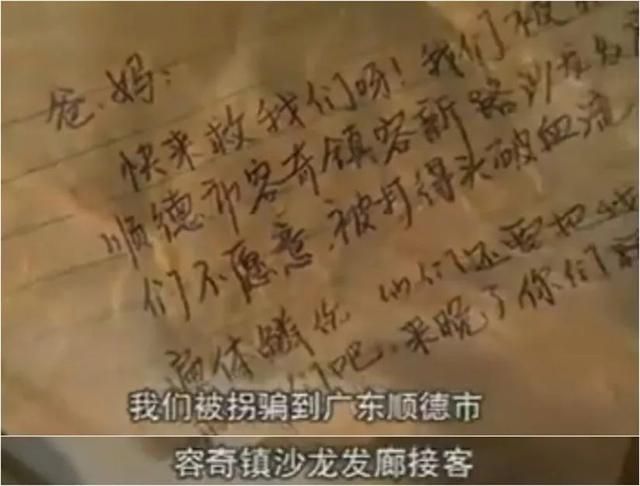 爸、妈：
快来救我们呀！我们被
顺德市容奇镇容新路沙龙发
们不愿意，被打得头破血流
遍体鳞伤 他们还要把
们吧，来晚了你们
我们被拐骗到广东顺德市
容奇镇沙龙发廊接客